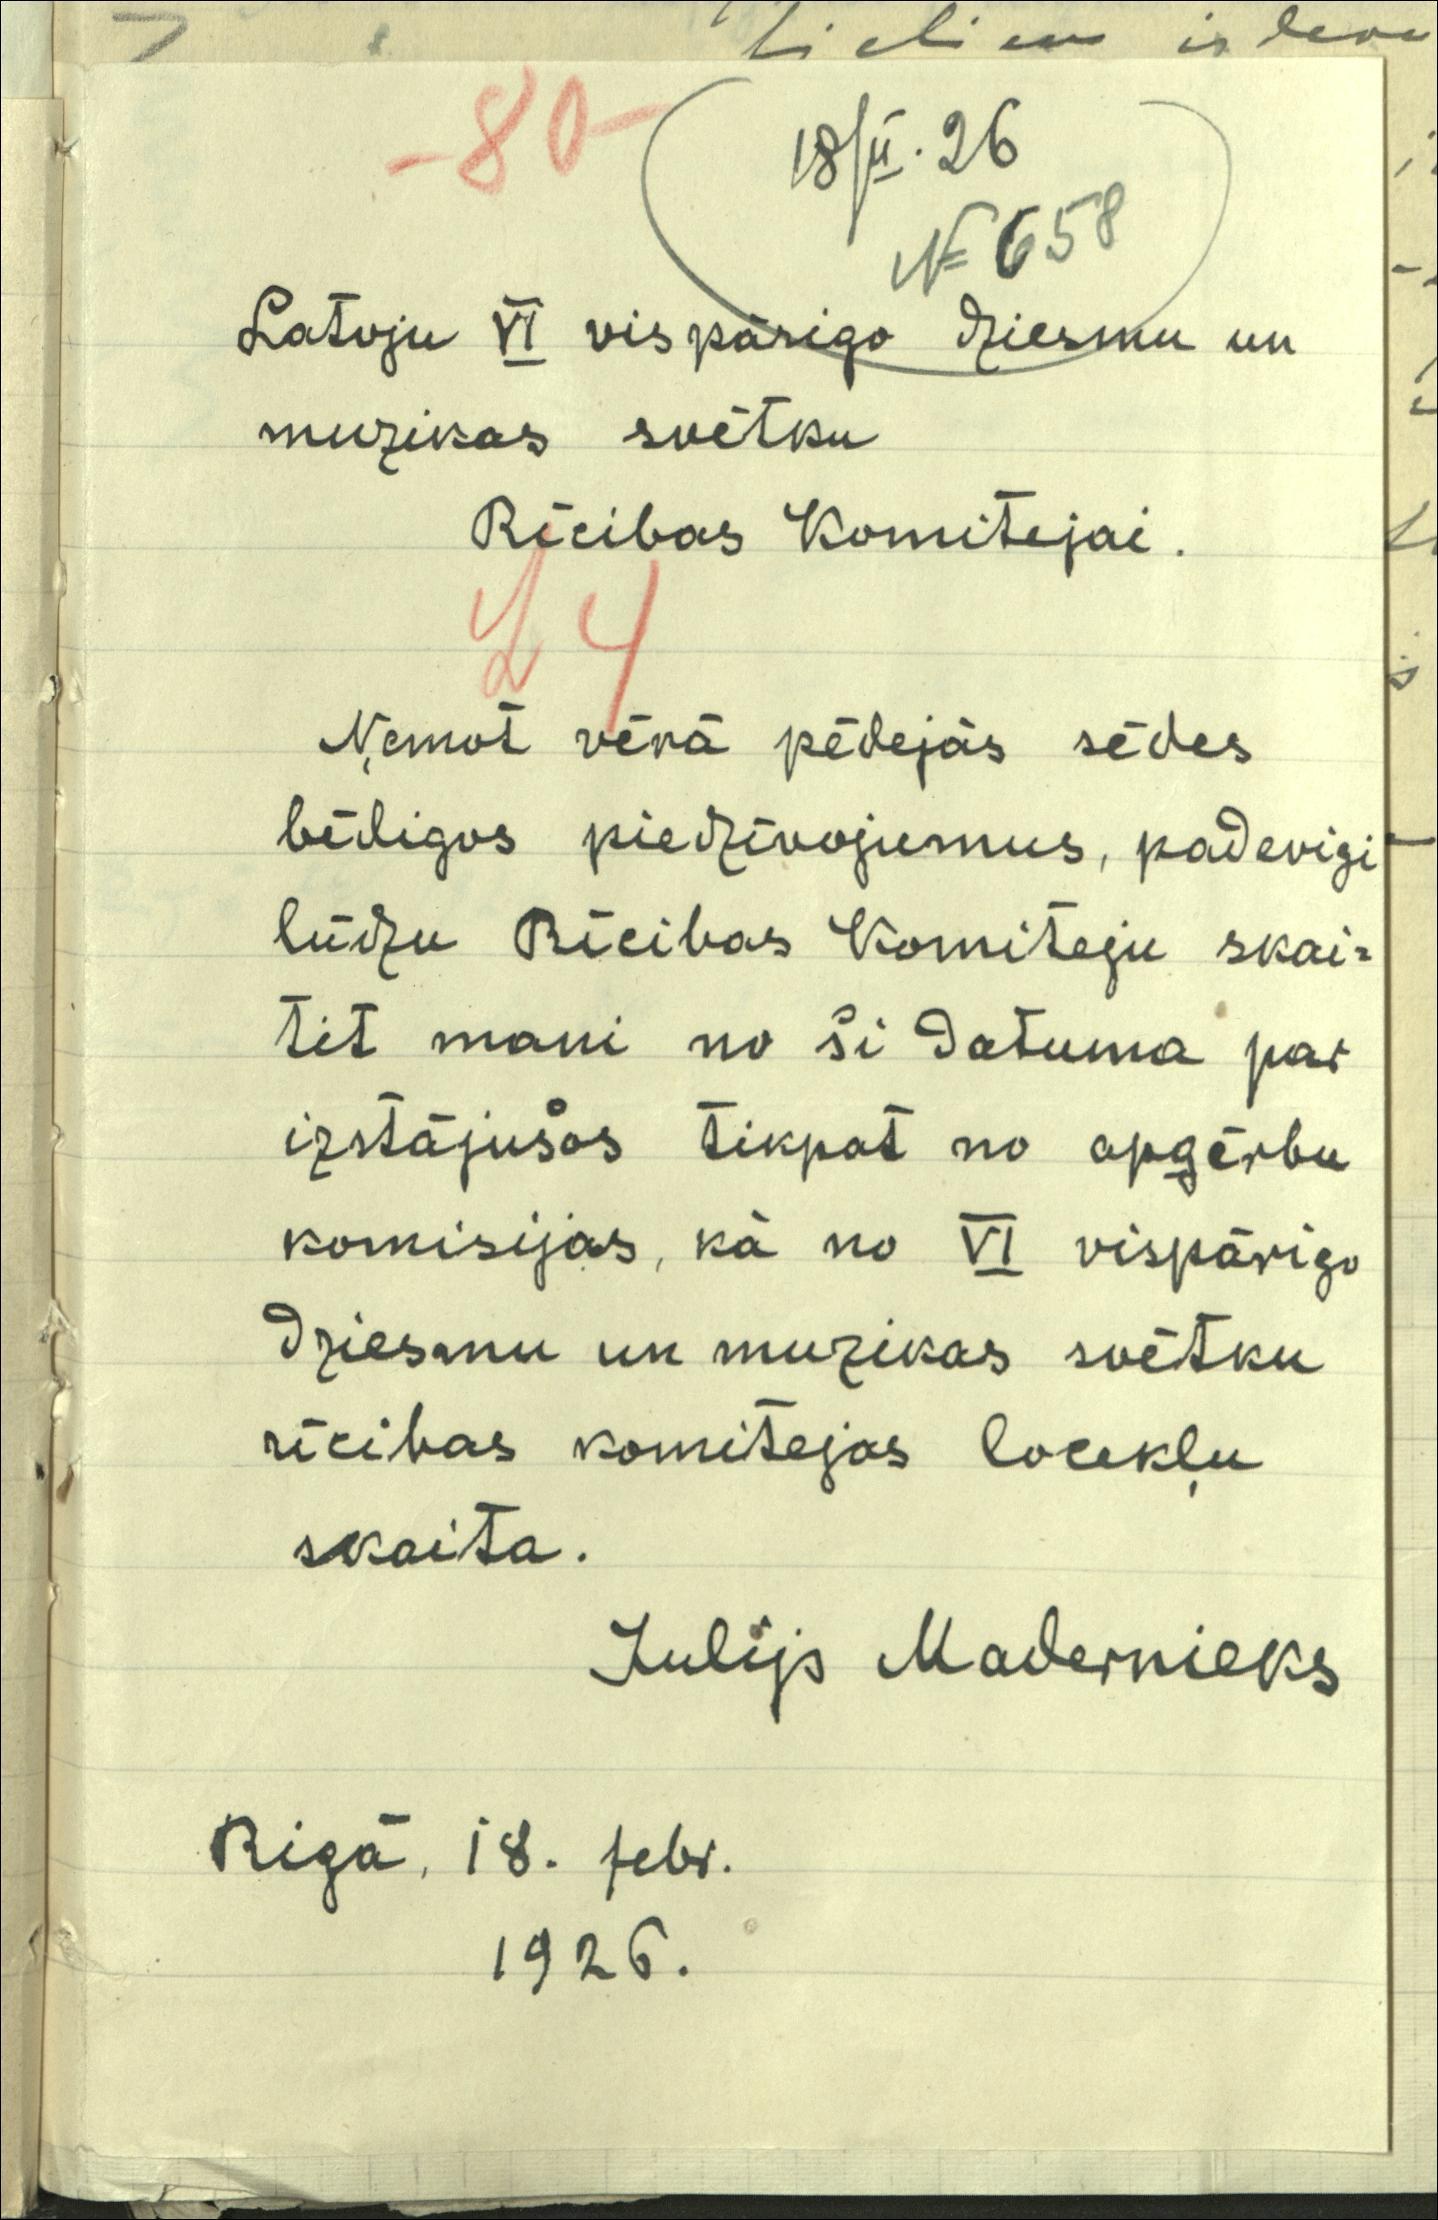 -80-
18/II.26
№ 658
Latvju VI vispārigo dziesmu un
muzikas svētku
Rīcibas Komitejai.
4
Ņemot vērā pēdejās sēdes
bēdigos piedzīvojumus, padevigi
lūdzu Rīcibas Komiteju skai=
tit mani no ši datuma par
izstājušos tikpat no apgērbu
komisijas, kā no VI vispārigo
dziesmu un muzikas svētku
rīcibas komitejas locekļu
skaita.
Julijs Madernieks
Rigā, 18. febr.
1926.